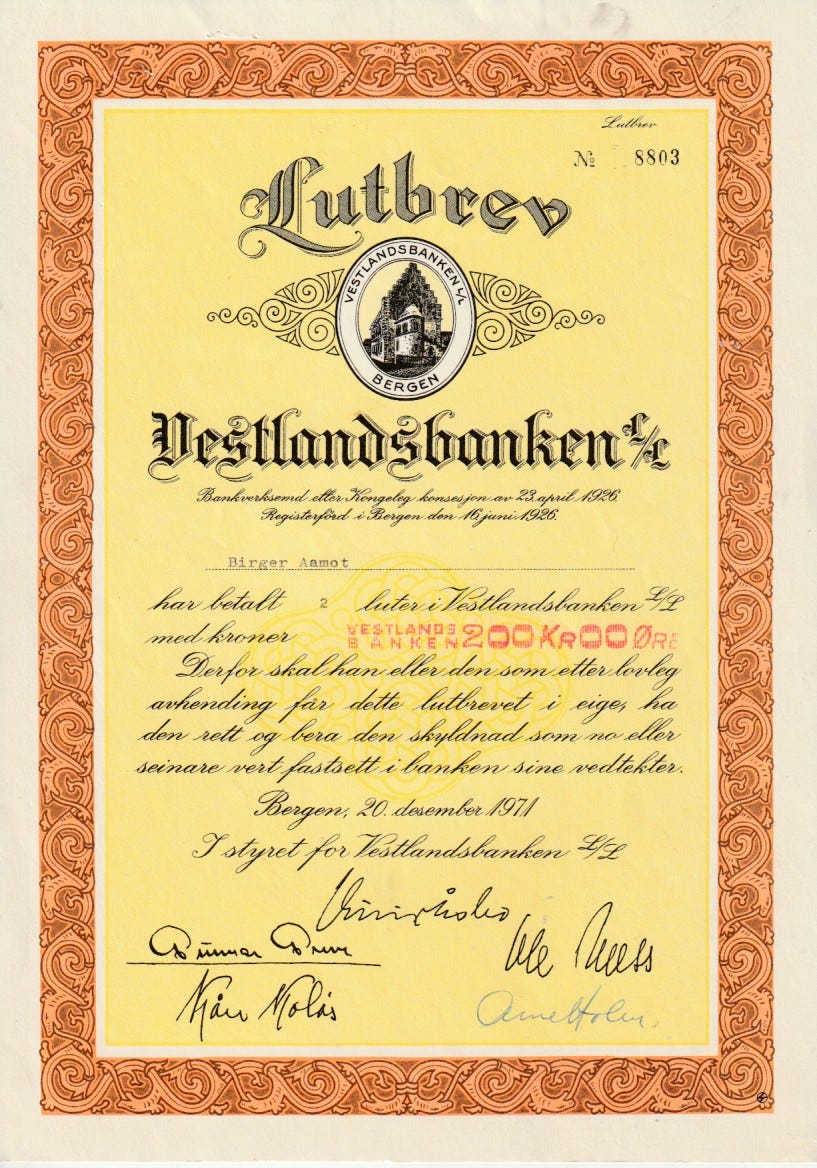 Lutbrev
№ 8803
Lutbrev
VESTLANDSBANKEN L/L
BERGEN
Vestlandsbanken L/L
Bankverksemd etter Kongeleg konsesjon av 23. april 1926.
Registerförd i Bergen den 16 juni 1926.
Birger Aamot
har betalt 2 luter i Vestlandsbanken L/L
med kroner VESTLANDS BANKEN 200 KR 00 ØRE
Derfor skal han eller den som etter lovleg
avhending får dette lutbrevet i eige, ha
den rett og bera den skyldnad som no eller
seinare vert fastsett i banken sine vedtekter.
Bergen, 20. desember 1971
I styret for Vestlandsbanken L/L
Gunnar
Ole Næss
Kåre Kolås
Arne Holm